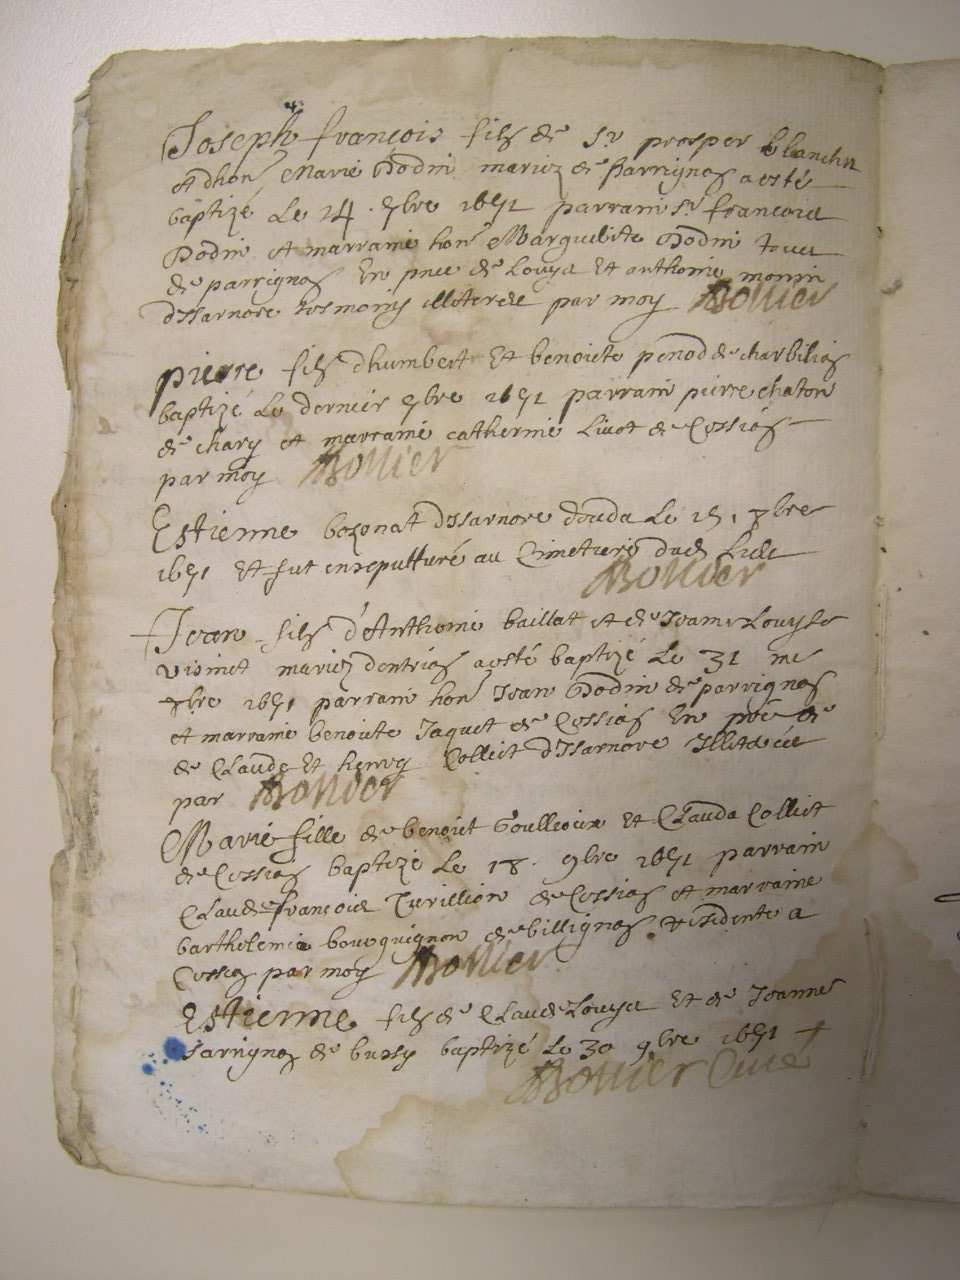 Joseph françois filz de Sr prosper blanchet
et dhon. Marie Godin mariez de parrignas a esté
baptizé Le 14. 7bre 1651 parrain Sr françois
Godin et marraine hon. Marguelite Godin tous
de parrignas En pnce de Louys Et anthoine monin
dIsarnore tesmoins illiterez par moy Bollier
pierre filz dhumbert Et benoicte penod de charbilias
baptizé Le dernier 9bre 1651 parrain pierre chaton
de chary et marraine catherine Livot de Cessias
par moy Bollier
Estienne bozonat dIsarnore décéda Le 15. 8bre
1651 Et fut ensepulturé au Cimetiere dud Lieu
Bollier
Jean filz d'Anthoine baillat et de Jeanne Louyse
visinet mariez dentrias a esté baptizé Le 31 me
8bre 1651 parrain hon. Jean Godin de parrignas
et marraine benoicte Jaquet de Cessias En pnce de
de Claude Et henry Colliet dIsarnore Illiterez
par Bollier
Marie fille de benoict Goullioux Et Clauda Colliet
de Cessias baptizé Le 18. 9bre 1651 parrain
Claude françois Turillion de Cessias et marraine
barthelemie bourguignon de billignas residente a
Cessias par moy Bollier
Estienne filz de Claude Louys Et de Jeanne
Sarrignas de bussy baptizé Le 30 9bre 1651 +
Bollier Curé